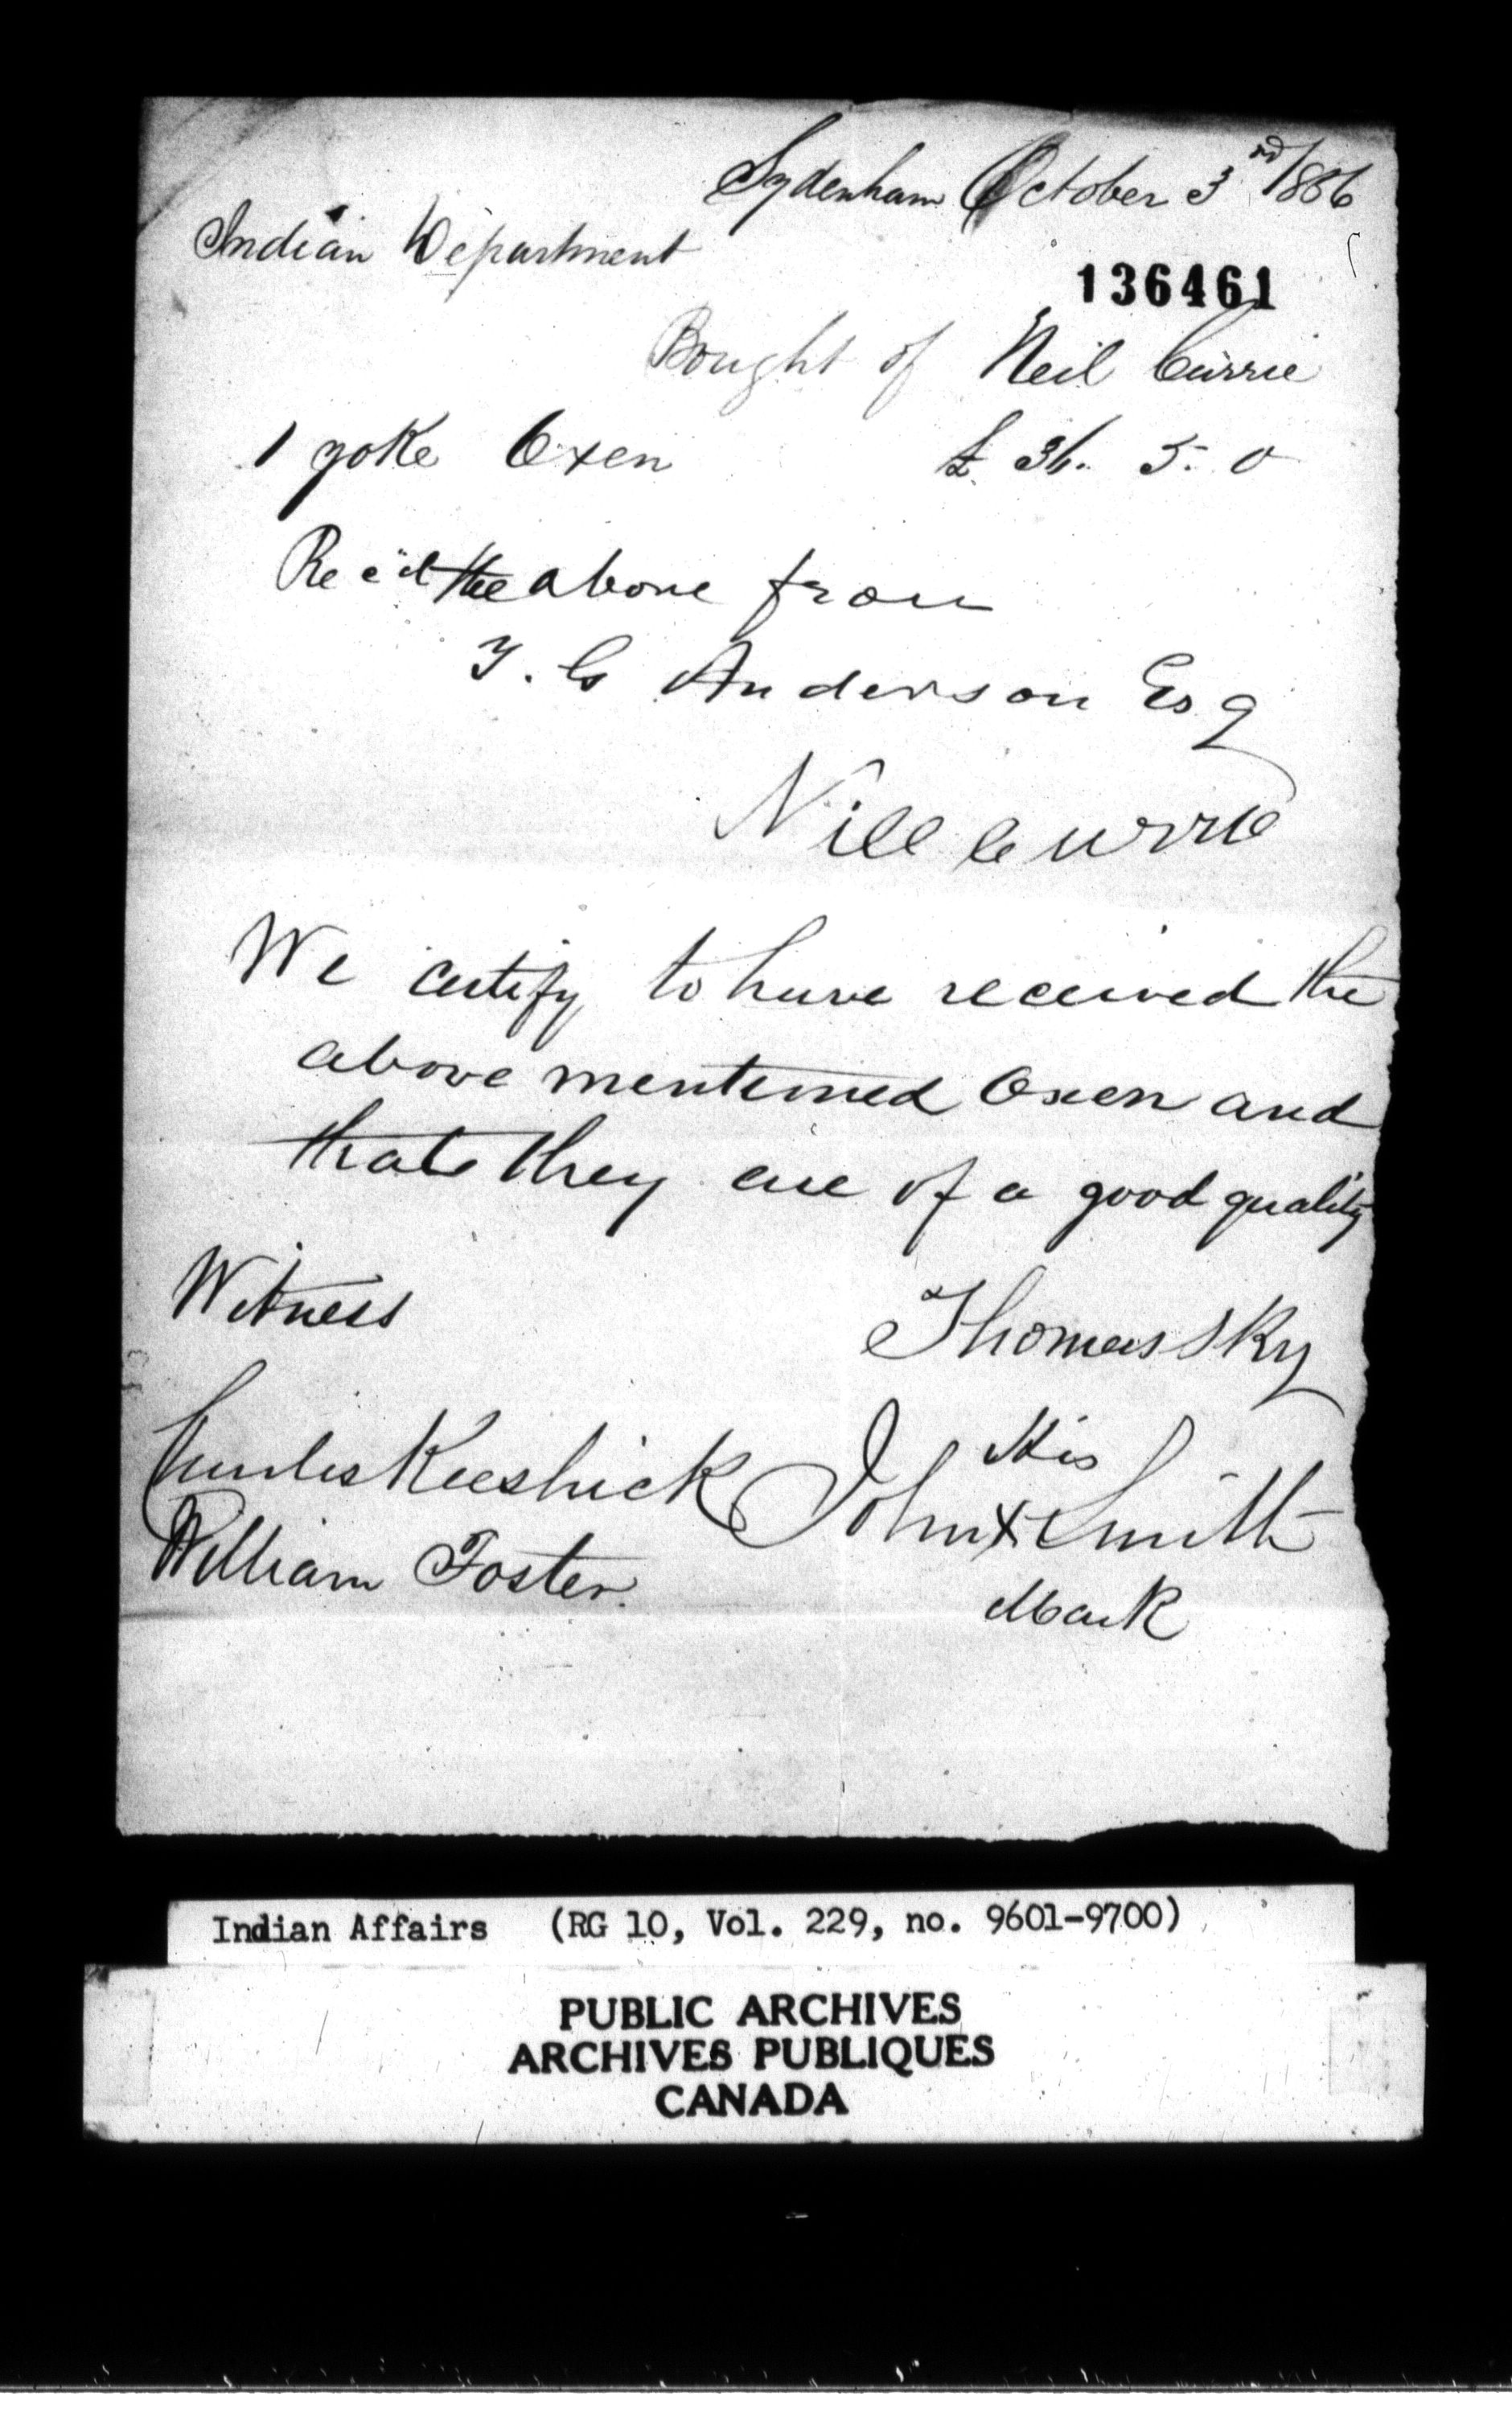 Sydenham October 3rd 1856
Indian Department
136461
Bought of Neil Currie
1 yoke Oxen £ 36. 5. 0
Rec'd the above from
T. G Anderson Esq
Nill Currie
We certify to have received the
above mentioned Oxen and
that they are of a good quality
Witness
Thomas Sky
Charles Keeshick
His
John X Smith
William Foster.
Mark
Indian Affairs (RG 10, Vol. 229, no. 9601-9700)
PUBLIC ARCHIVES
ARCHIVES PUBLIQUES
CANADA